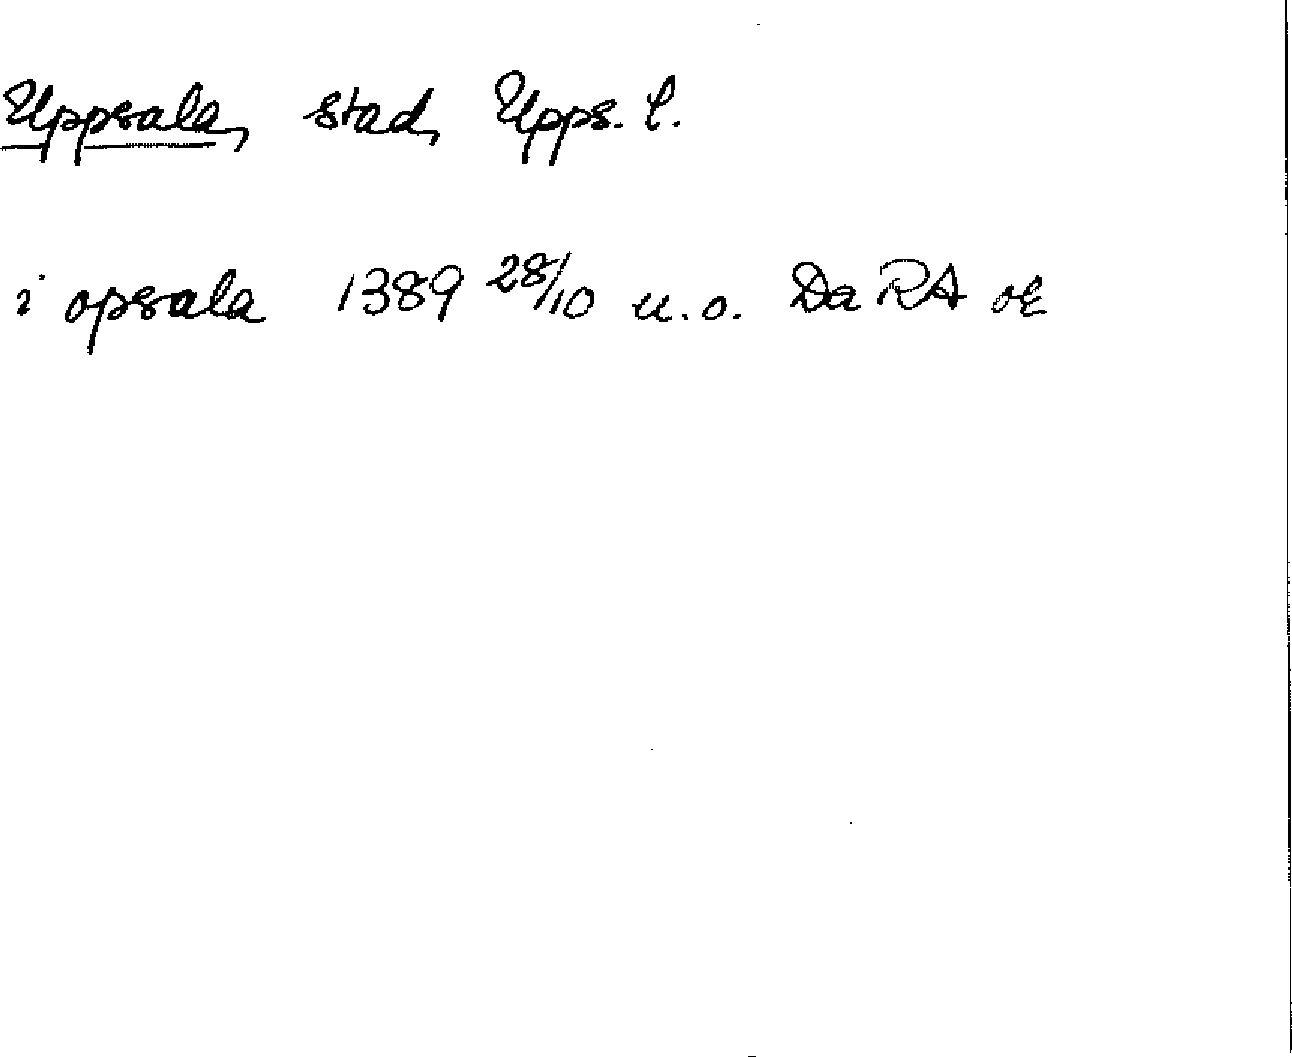 Uppsala, stad, Upps. l.
i opsala 1389 28/10 u.o. Da RA